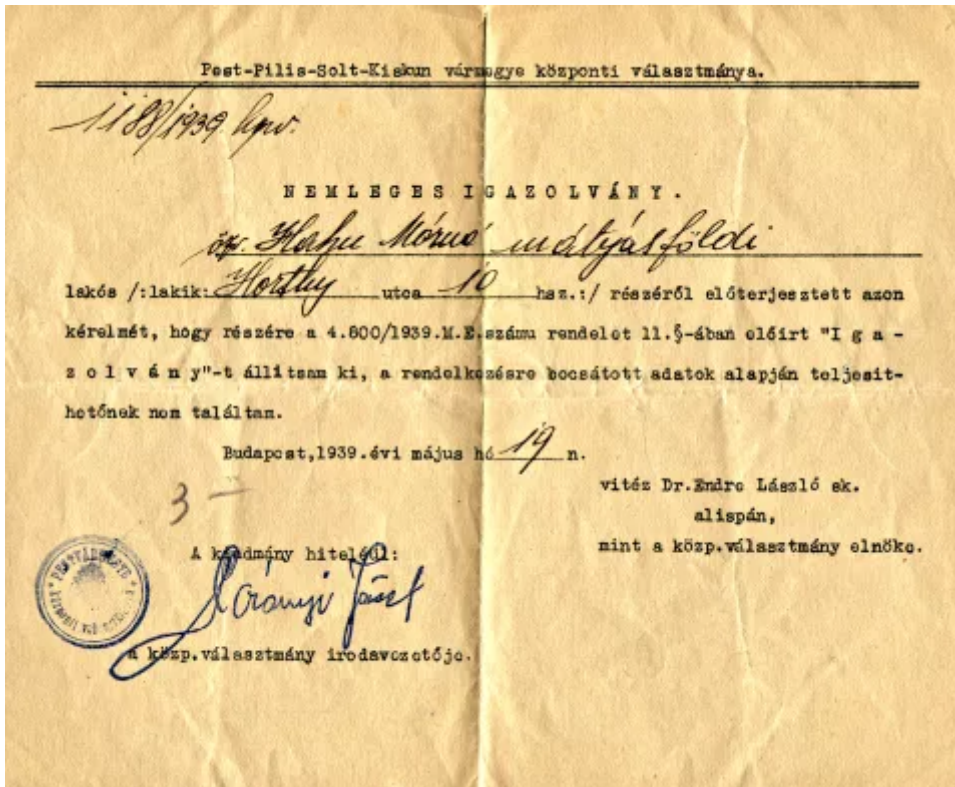 Pest-Pilis-Solt-Kiskun vármegye központi választmánya.
1188/1939 kpv.
N E M L E G E S I G A Z O L V Á N Y .
özv. Hahn Mórné mátyásföldi
lakós /:lakik: Horthy utca 10 hsz.:/ részéről előterjesztett azon
kérelmét, hogy részére a 4.800/1939.M.E.számu rendelet 11.§-ában előirt "I g a -
z o l v á n y"-t állitsam ki, a rendelkezésre bocsátott adatok alapján teljesit-
hetőnek nem találtam.
Budapest,1939.évi május hó 19 n.
3 —
vitéz Dr.Endre László sk.
alispán,
mint a közp.választmány elnöke.
A kiadmány hiteléül:
József
a közp.választmány irodavezetője.
PESTVÁRMEGYE